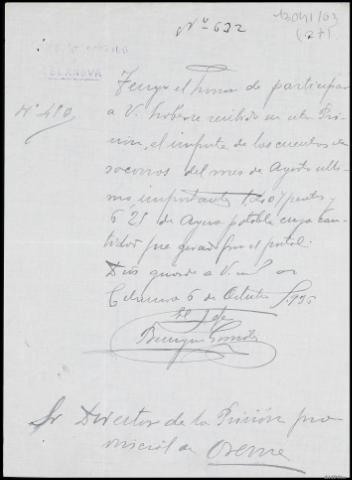 Nº 632
CELANOVA
Nº 480
Tengo el honor de participar
a V. haberse recibido en esta Pri
sión, el importe de las cuentas de
socorros del mes de Agosto últi
mo, importantes 1 pesetas y
6'25 de Agua potable cuya can
tidad fue girada por el postal.
Dios guarde a V. m. a.
Celanova 6 de Octubre 1935
El Jefe
Sr Director de la Prisión pro
vincial de Orense